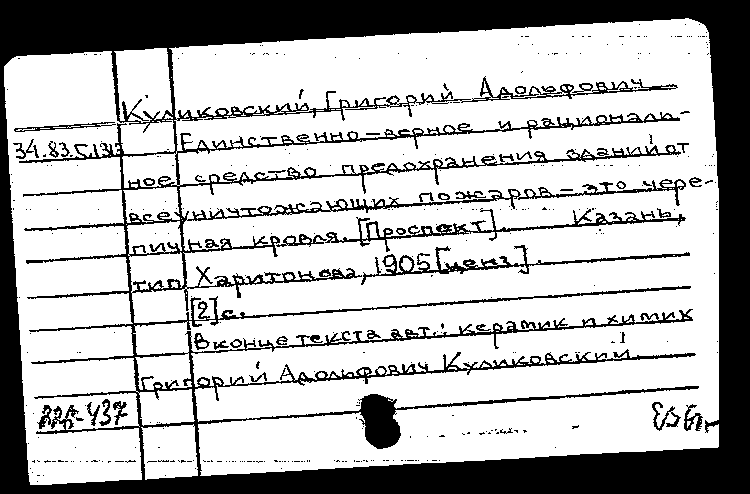 Куликовский, Григорий Адольфович
34.83.5.1313 Единственно-верное и рациональ-
ное средство предохранения зданий от
всеуничтожающих пожаров - это чере-
пичная кровля. [Проспект]. Казань,
тип. Харитонова, 1905 [ценз.].
[2] с.
В конце текста авт.: керамик и химик
Григорий Адольфович Куликовский.
437